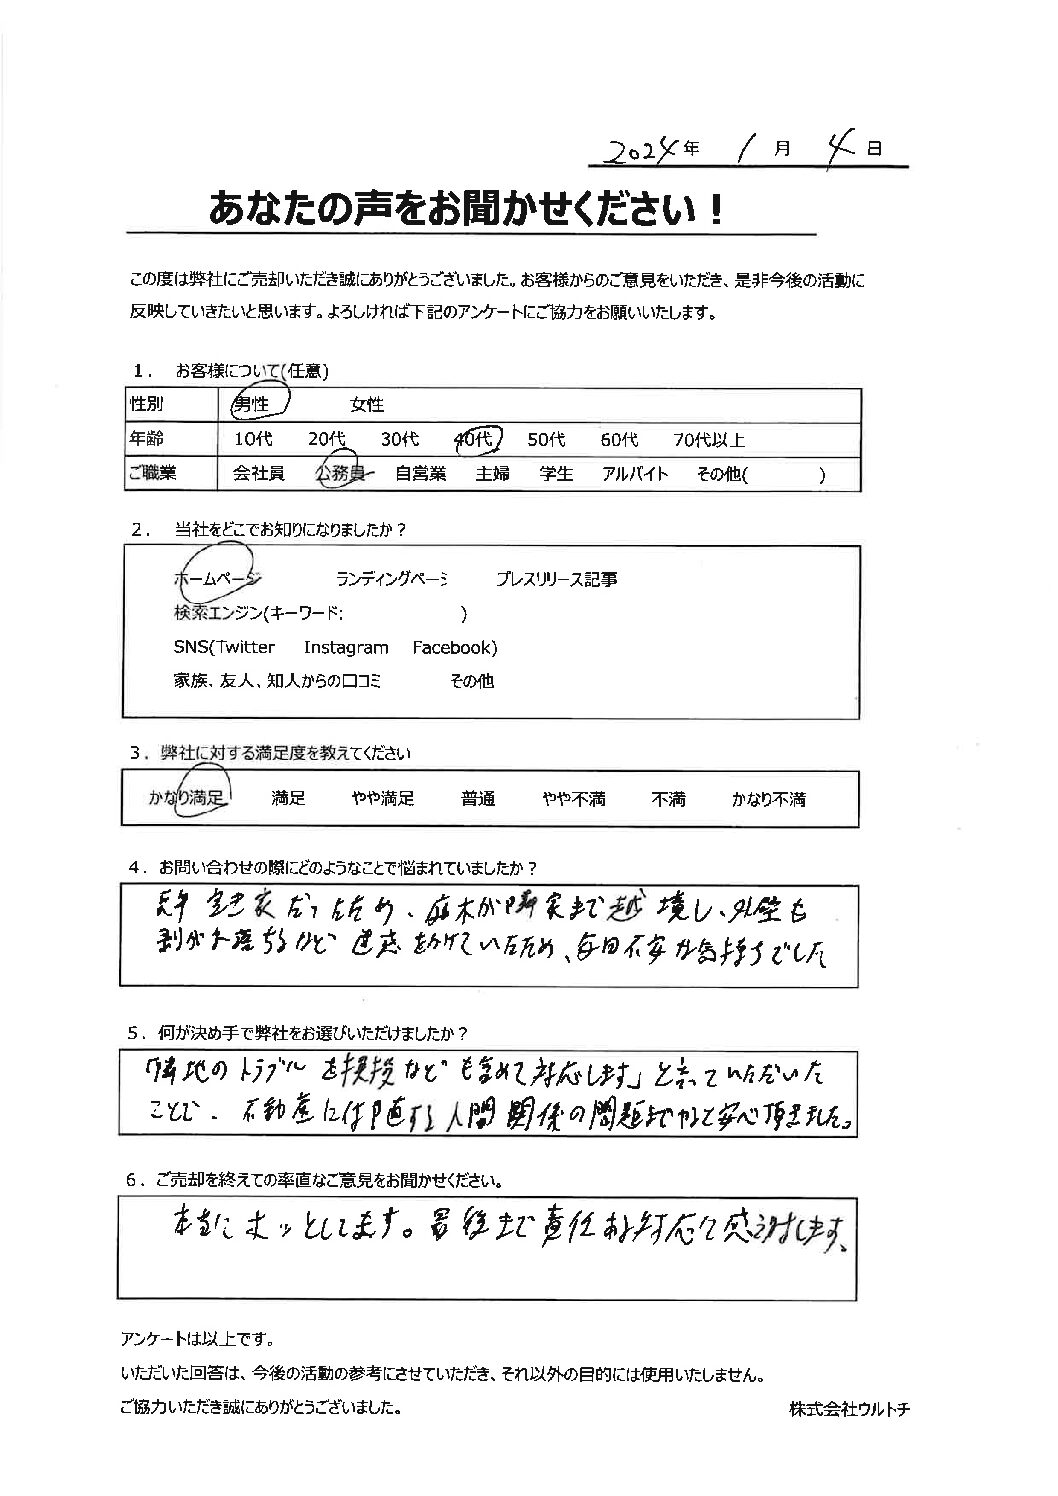 2024年 1月 4日
あなたの声をお聞かせください！
この度は弊社にご売却いただき誠にありがとうございました。お客様からのご意見をいただき、是非今後の活動に
反映していきたいと思います。よろしければ下記のアンケートにご協力をお願いいたします。
１． お客様について(任意)
性別 男性 女性
年齢 10代 20代 30代 40代 50代 60代 70代以上
ご職業 会社員 公務員 自営業 主婦 学生 アルバイト その他( )
２． 当社をどこでお知りになりましたか？
ホームページ ランディングページ プレスリリース記事
検索エンジン(キーワード: )
SNS(Twitter Instagram Facebook)
家族、友人、知人からの口コミ その他
３．弊社に対する満足度を教えてください
かなり満足 満足 やや満足 普通 やや不満 不満 かなり不満
４．お問い合わせの際にどのようなことで悩まれていましたか？
空き家だったため、庭木が隣家まで越境し、外壁も
剥がれ落ちるなど迷惑をかけていたため、毎日不安な気持ちでした
５．何が決め手で弊社をお選びいただけましたか？
「隣地のトラブルを挨拶なども含めて対応します」と言っていただいた
ことで、不動産には付随する人間関係の問題までやっと安心頂きました。
６．ご売却を終えての率直なご意見をお聞かせください。
本当にホッとしてます。最後まで責任ある対応で感謝します。
アンケートは以上です。
いただいた回答は、今後の活動の参考にさせていただき、それ以外の目的には使用いたしません。
ご協力いただき誠にありがとうございました。
株式会社ウルトチ